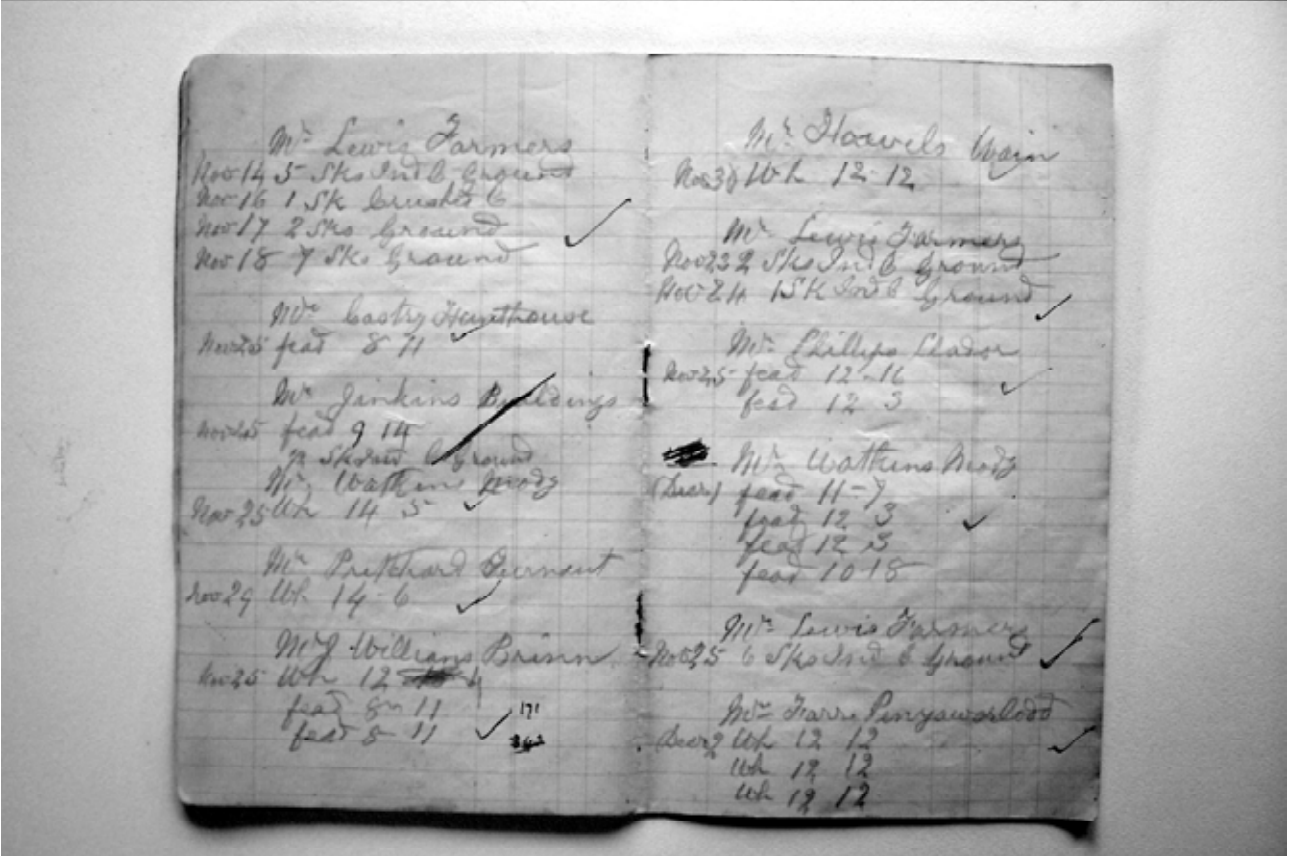 Mr Lewis Farmers
Nov 14 5 Sks Ind C Ground
Nov 16 1 Sk Crushed C
Nov 17 2 Sks Ground
Nov 18 7 Sks Ground
Mr
Nov 25 fead 8 11
Mr Jinkins Buildings
Nov 25 fead 9 14
C Ground
Mr Watkins
Nov 25 Wh 14 5
Mr Pritchard
Nov 29 Wh 14-6
Mr J Williams
Nov 25 Wh 12 4
fead 8-11
fead 8 11
171
Mr Howels Wain
Wh 12-12
Mr Lewis Farmers
Nov 23 2 Sks Ind C Ground
Nov 24 1 Sk Ind C Ground
Mr Phillips
Nov 25 fead 12-16
fead 12 3
Mr Watkins
fead 11-7
fead 12 3
fead 12 3
fead 10-18
Mr Lewis Farmers
Nov 25 6 Sks Ind C Ground
Mr
Wh 12 12
Wh 12 12
Wh 12 12